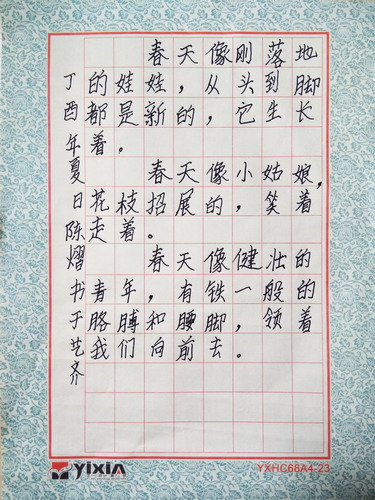 春天像刚落地
的娃娃，从头到脚
都是新的，它生长
着。
春天像小姑娘，
花枝招展的，笑着
走着。
春天像健壮的
青年，有铁一般的
胳膊和腰脚，领着
我们向前去。
丁酉年夏日陈熠书于艺齐
YIXIN
YXHC68A4-23